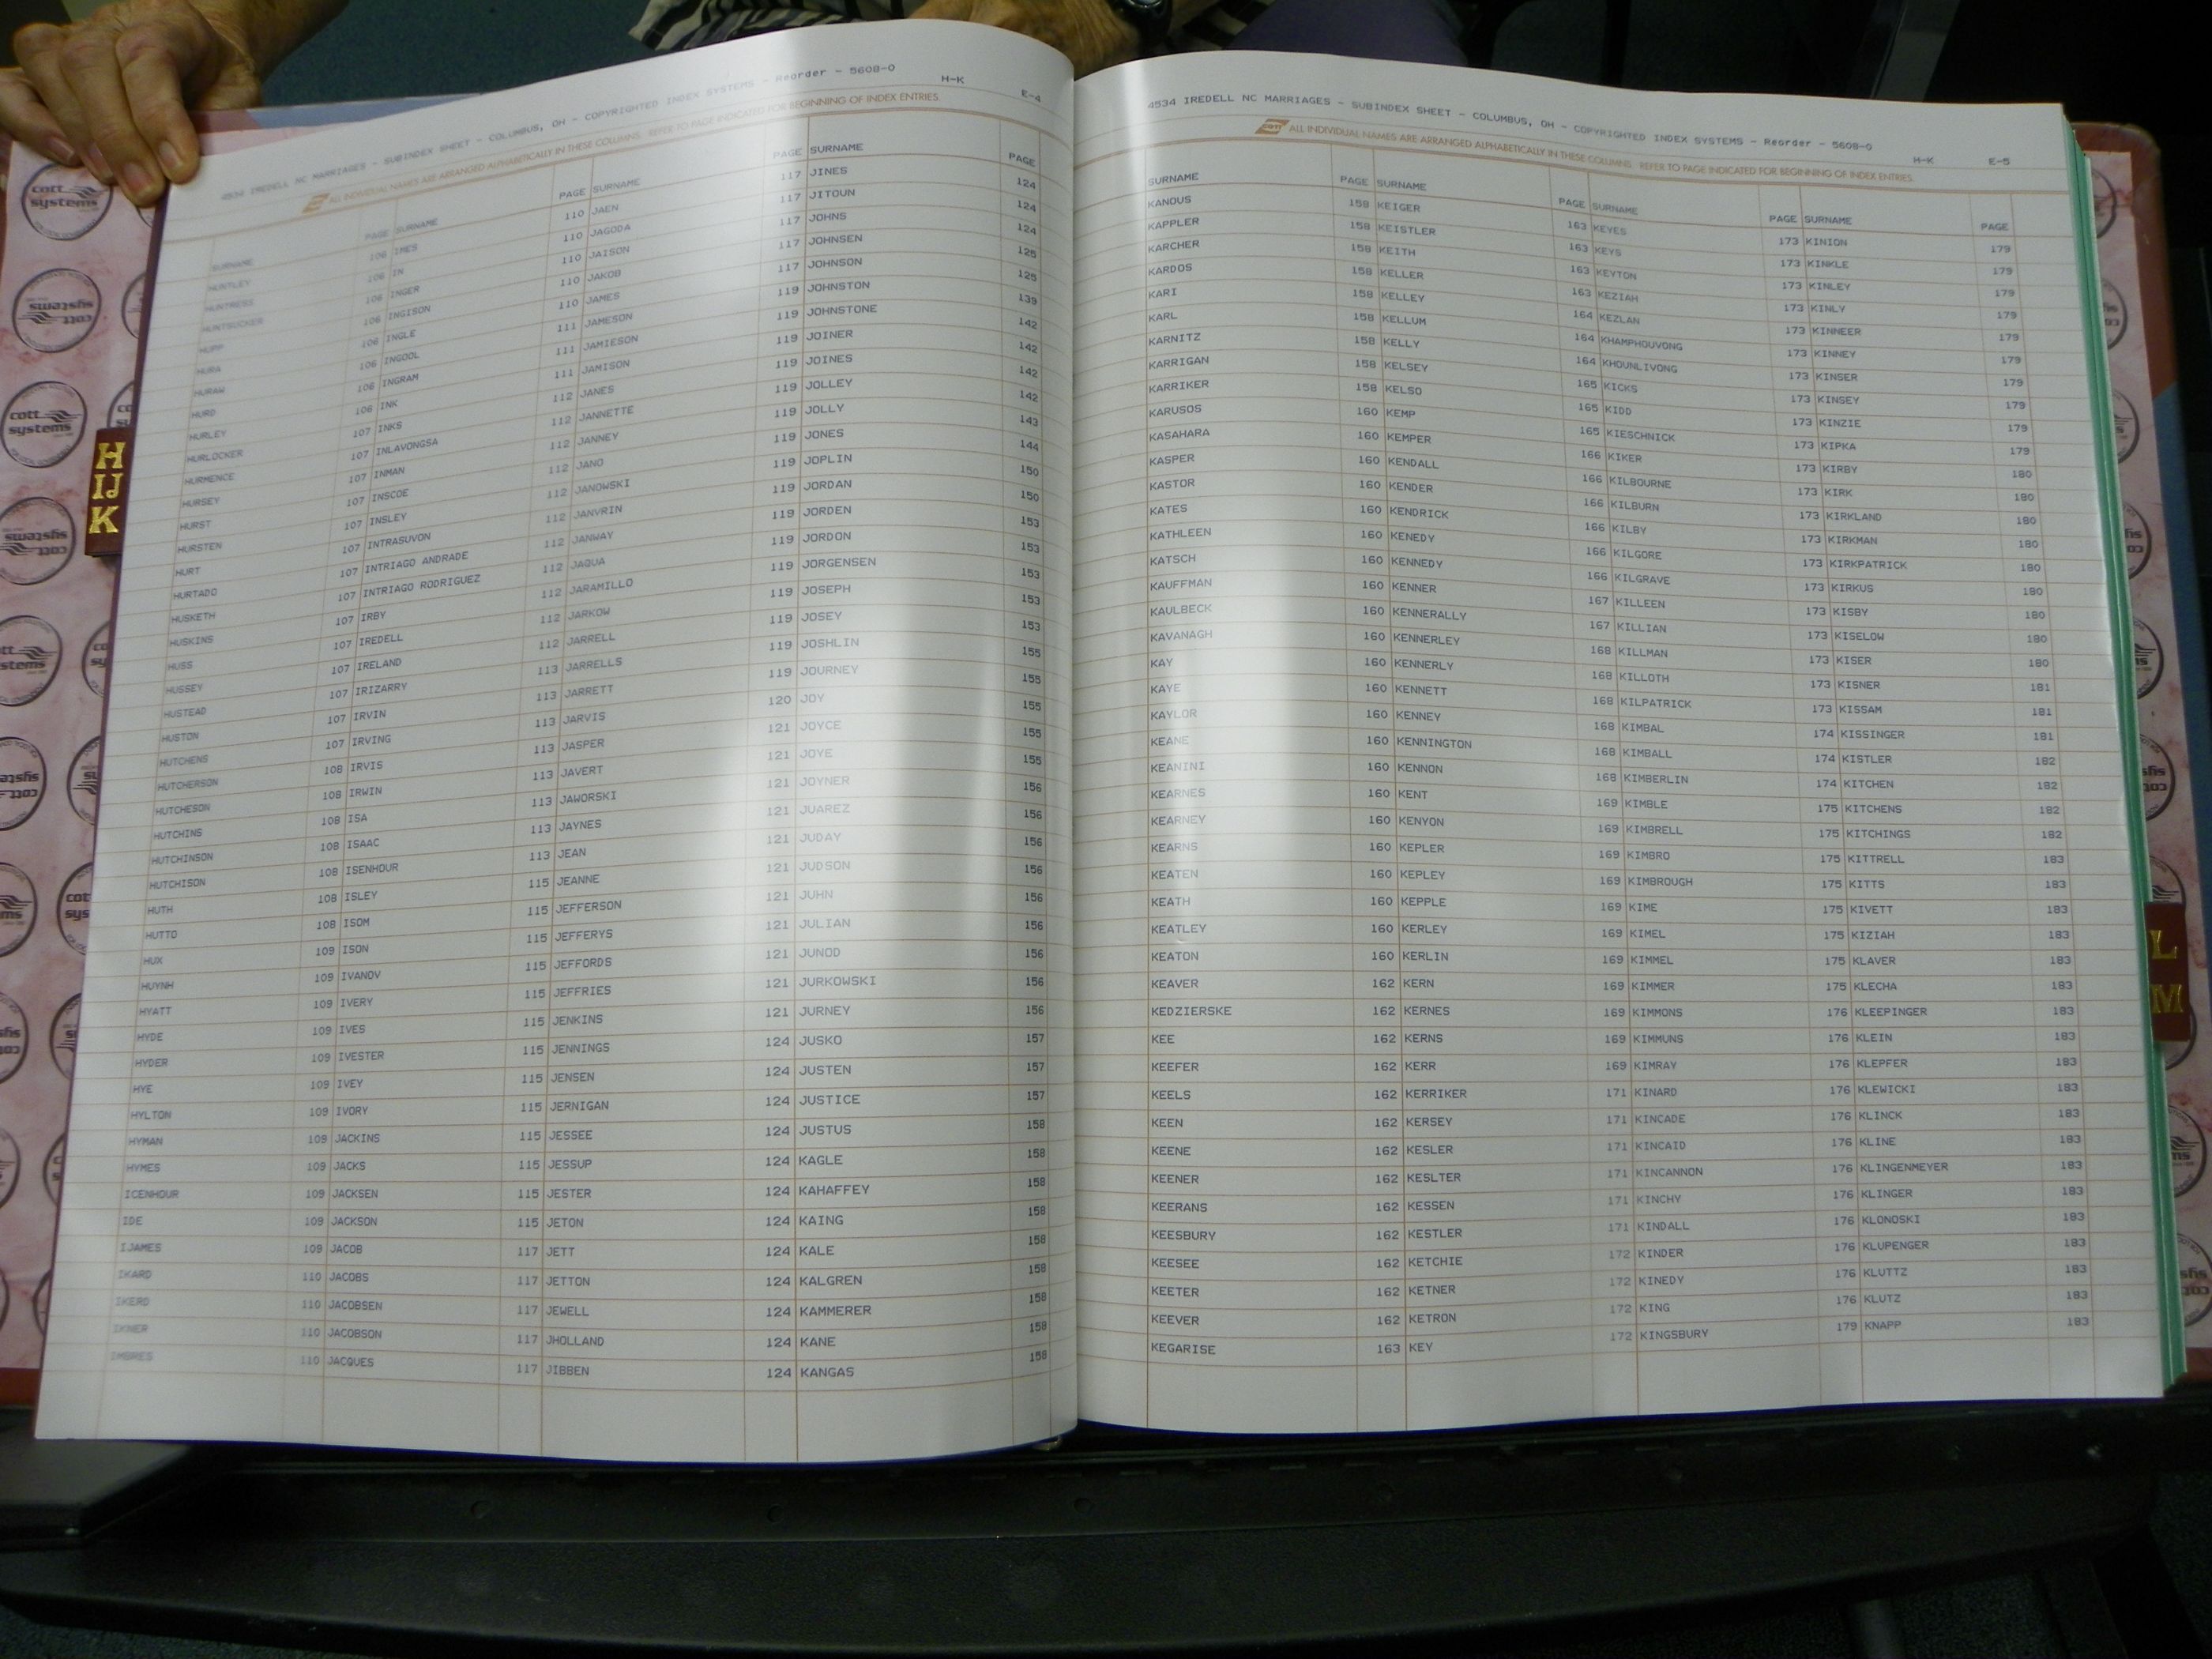 4534 IREDELL NC MARRIAGES - SUBINDEX SHEET - COLUMBUS, OH - COPYRIGHTED INDEX SYSTEMS - Reorder - 5608-0 H-K E-4
ALL INDIVIDUAL NAMES ARE ARRANGED ALPHABETICALLY IN THESE COLUMNS. REFER TO PAGE INDICATED FOR BEGINNING OF INDEX ENTRIES.
SURNAME PAGE
HUNTLEY 106
HUNTRESS 106
HUNTSUCKER 106
HUPP 106
HURA 106
HURAW 106
HURD 106
HURLEY 107
HURLOCKER 107
HURMENCE 107
HURSEY 107
HURST 107
HURSTEN 107
HURT 107
HURTADO 107
HUSKETH 107
HUSKINS 107
HUSS 107
HUSSEY 107
HUSTEAD 107
HUSTON 107
HUTCHENS 108
HUTCHERSON 108
HUTCHESON 108
HUTCHINS 108
HUTCHINSON 108
HUTCHISON 108
HUTH 108
HUTTO 109
HUX 109
HUYNH 109
HYATT 109
HYDE 109
HYDER 109
HYE 109
HYLTON 109
HYMAN 109
HYMES 109
ICENHOUR 109
IDE 109
IJAMES 109
IKARD 110
IKERD 110
IKNER 110
IMBRES 110
SURNAME PAGE
IMES 110
IN 110
INGER 110
INGISON 110
INGLE 110
INGOOL 111
INGRAM 111
INK 111
INKS 112
INLAVONGSA 112
INMAN 112
INSCOE 112
INSLEY 112
INTRASUVON 112
INTRIAGO ANDRADE 112
INTRIAGO RODRIGUEZ 112
IRBY 112
IREDELL 112
IRELAND 113
IRIZARRY 113
IRVIN 113
IRVING 113
IRVIS 113
IRWIN 113
ISA 113
ISAAC 113
ISENHOUR 115
ISLEY 115
ISOM 115
ISON 115
IVANOV 115
IVERY 115
IVES 115
IVESTER 115
IVEY 115
IVORY 115
JACKINS 115
JACKS 115
JACKSEN 115
JACKSON 115
JACOB 117
JACOBS 117
JACOBSEN 117
JACOBSON 117
JACQUES 117
SURNAME PAGE
JAEN 117
JAGODA 117
JAISON 117
JAKOB 117
JAMES 117
JAMESON 119
JAMIESON 119
JAMISON 119
JANES 119
JANNETTE 119
JANNEY 119
JANO 119
JANOWSKI 119
JANVRIN 119
JANWAY 119
JAQUA 119
JARAMILLO 119
JARKOW 119
JARRELL 119
JARRELLS 119
JARRETT 120
JARVIS 121
JASPER 121
JAVERT 121
JAWORSKI 121
JAYNES 121
JEAN 121
JEANNE 121
JEFFERSON 121
JEFFERYS 121
JEFFORDS 121
JEFFRIES 121
JENKINS 124
JENNINGS 124
JENSEN 124
JERNIGAN 124
JESSEE 124
JESSUP 124
JESTER 124
JETON 124
JETT 124
JETTON 124
JEWELL 124
JHOLLAND 124
JIBBEN 124
SURNAME PAGE
JINES 124
JITOUN 124
JOHNS 124
JOHNSEN 125
JOHNSON 125
JOHNSTON 139
JOHNSTONE 142
JOINER 142
JOINES 142
JOLLEY 142
JOLLY 143
JONES 144
JOPLIN 150
JORDAN 150
JORDEN 153
JORDON 153
JORGENSEN 153
JOSEPH 153
JOSEY 153
JOSHLIN 155
JOURNEY 155
JOY 155
JOYCE 155
JOYE 155
JOYNER 156
JUAREZ 156
JUDAY 156
JUDSON 156
JUHN 156
JULIAN 156
JUNOD 156
JURKOWSKI 156
JURNEY 156
JUSKO 157
JUSTEN 157
JUSTICE 157
JUSTUS 158
KAGLE 158
KAHAFFEY 158
KAING 158
KALE 158
KALGREN 158
KAMMERER 158
KANE 158
KANGAS 158
4534 IREDELL NC MARRIAGES - SUBINDEX SHEET - COLUMBUS, OH - COPYRIGHTED INDEX SYSTEMS - Reorder - 5608-0 H-K E-5
cott ALL INDIVIDUAL NAMES ARE ARRANGED ALPHABETICALLY IN THESE COLUMNS. REFER TO PAGE INDICATED FOR BEGINNING OF INDEX ENTRIES.
SURNAME PAGE
KANOUS 158
KAPPLER 158
KARCHER 158
KARDOS 158
KARI 158
KARL 158
KARNITZ 158
KARRIGAN 158
KARRIKER 158
KARUSOS 160
KASAHARA 160
KASPER 160
KASTOR 160
KATES 160
KATHLEEN 160
KATSCH 160
KAUFFMAN 160
KAULBECK 160
KAVANAGH 160
KAY 160
KAYE 160
KAYLOR 160
KEANE 160
KEANINI 160
KEARNES 160
KEARNEY 160
KEARNS 160
KEATEN 160
KEATH 160
KEATLEY 160
KEATON 160
KEAVER 162
KEDZIERSKE 162
KEE 162
KEEFER 162
KEELS 162
KEEN 162
KEENE 162
KEENER 162
KEERANS 162
KEESBURY 162
KEESEE 162
KEETER 162
KEEVER 162
KEGARISE 163
SURNAME PAGE
KEIGER 163
KEISTLER 163
KEITH 163
KELLER 163
KELLEY 164
KELLUM 164
KELLY 164
KELSEY 165
KELSO 165
KEMP 165
KEMPER 166
KENDALL 166
KENDER 166
KENDRICK 166
KENEDY 166
KENNEDY 166
KENNER 167
KENNERALLY 167
KENNERLEY 168
KENNERLY 168
KENNETT 168
KENNEY 168
KENNINGTON 168
KENNON 168
KENT 169
KENYON 169
KEPLER 169
KEPLEY 169
KEPPLE 169
KERLEY 169
KERLIN 169
KERN 169
KERNES 169
KERNS 169
KERR 169
KERRIKER 171
KERSEY 171
KESLER 171
KESLTER 171
KESSEN 171
KESTLER 171
KETCHIE 172
KETNER 172
KETRON 172
KEY 172
SURNAME PAGE
KEYES 173
KEYS 173
KEYTON 173
KEZIAH 173
KEZLAN 173
KHAMPHOUVONG 173
KHOUNLIVONG 173
KICKS 173
KIDD 173
KIESCHNICK 173
KIKER 173
KILBOURNE 173
KILBURN 173
KILBY 173
KILGORE 173
KILGRAVE 173
KILLEEN 173
KILLIAN 173
KILLMAN 173
KILLOTH 173
KILPATRICK 173
KIMBAL 174
KIMBALL 174
KIMBERLIN 174
KIMBLE 175
KIMBRELL 175
KIMBRO 175
KIMBROUGH 175
KIME 175
KIMEL 175
KIMMEL 175
KIMMER 175
KIMMONS 176
KIMMUNS 176
KIMRAY 176
KINARD 176
KINCADE 176
KINCAID 176
KINCANNON 176
KINCHY 176
KINDALL 176
KINDER 176
KINEDY 176
KING 176
KINGSBURY 179
SURNAME PAGE
KINION 179
KINKLE 179
KINLEY 179
KINLY 179
KINNEER 179
KINNEY 179
KINSER 179
KINSEY 179
KINZIE 179
KIPKA 179
KIRBY 180
KIRK 180
KIRKLAND 180
KIRKMAN 180
KIRKPATRICK 180
KIRKUS 180
KISBY 180
KISELOW 180
KISER 180
KISNER 181
KISSAM 181
KISSINGER 181
KISTLER 182
KITCHEN 182
KITCHENS 182
KITCHINGS 182
KITTRELL 183
KITTS 183
KIVETT 183
KIZIAH 183
KLAVER 183
KLECHA 183
KLEEPINGER 183
KLEIN 183
KLEPFER 183
KLEWICKI 183
KLINCK 183
KLINE 183
KLINGENMEYER 183
KLINGER 183
KLONOSKI 183
KLUPENGER 183
KLUTTZ 183
KLUTZ 183
KNAPP 183
H
IJ
K
L
M
cott
systems